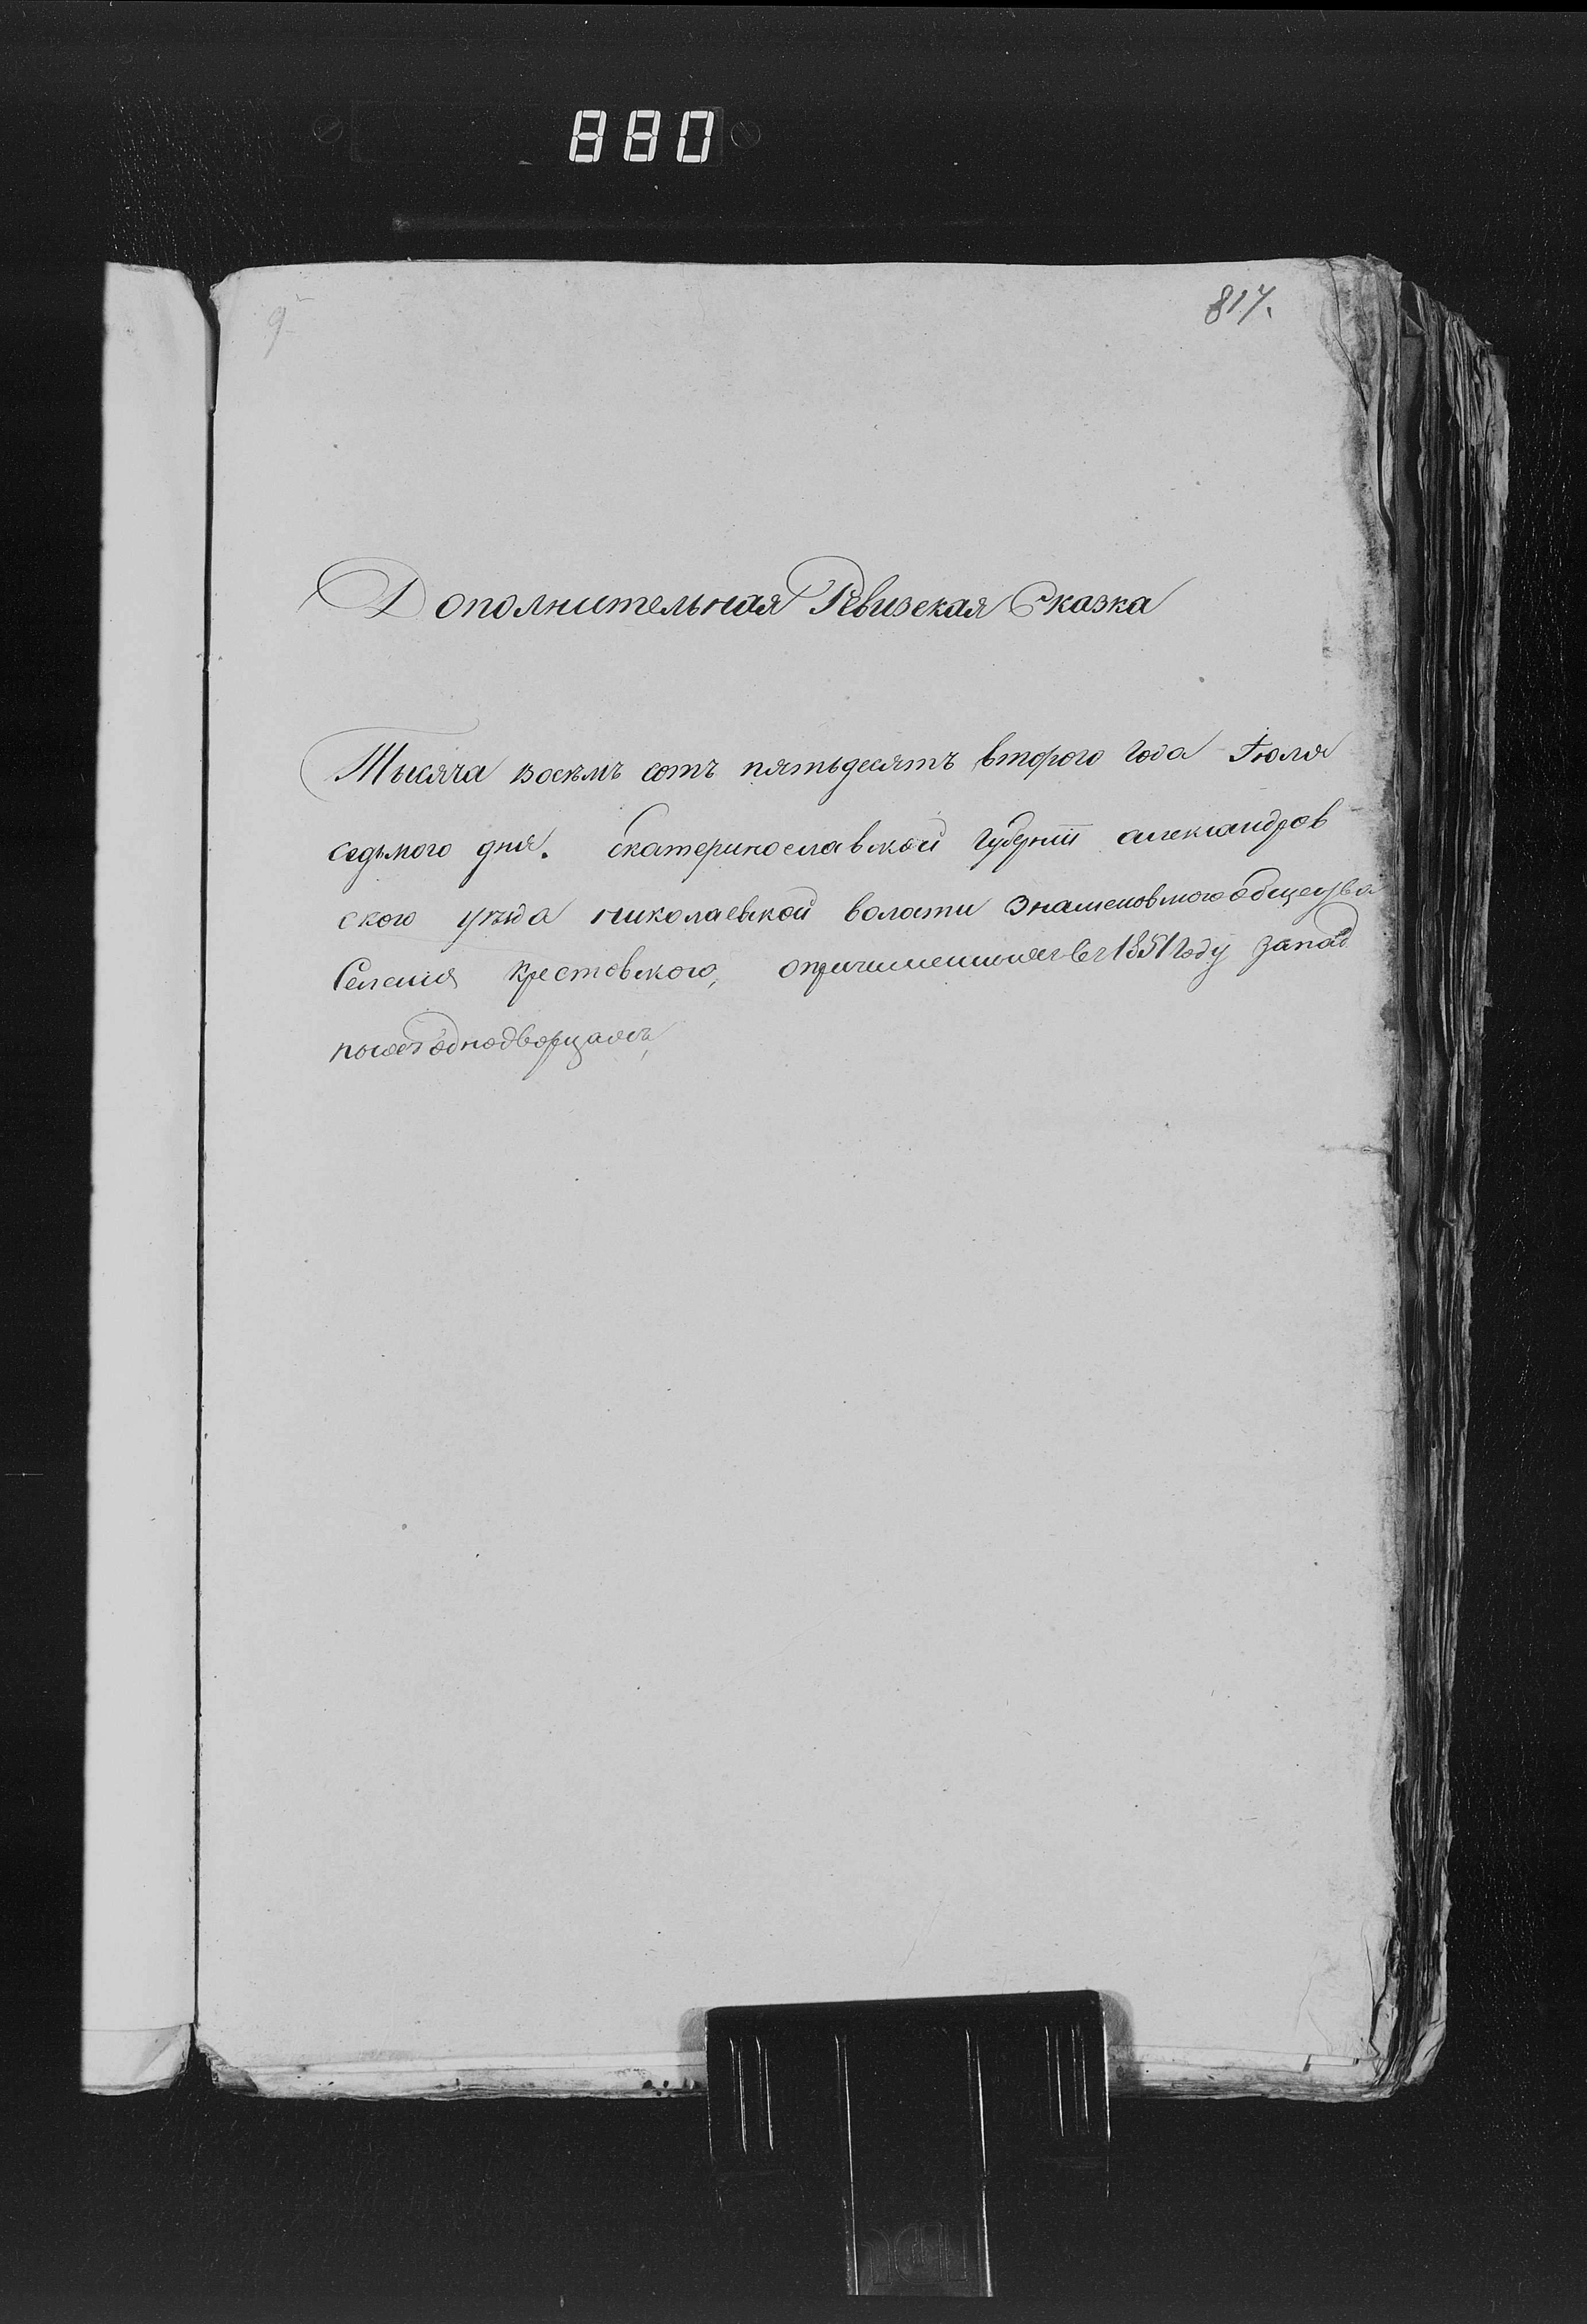 880
817.
Дополнительная Ревизская Сказка
Тысяча восемъ сотъ пятьдесятъ втораго года Іюля
седьмого дня. Екатеринославской Губерніи александров
ского уезда николаевской волости Знаменовского общества
Селенія Крестовского, опричисленныхъ въ 1851 году запад
ныхъ однодворцахъ